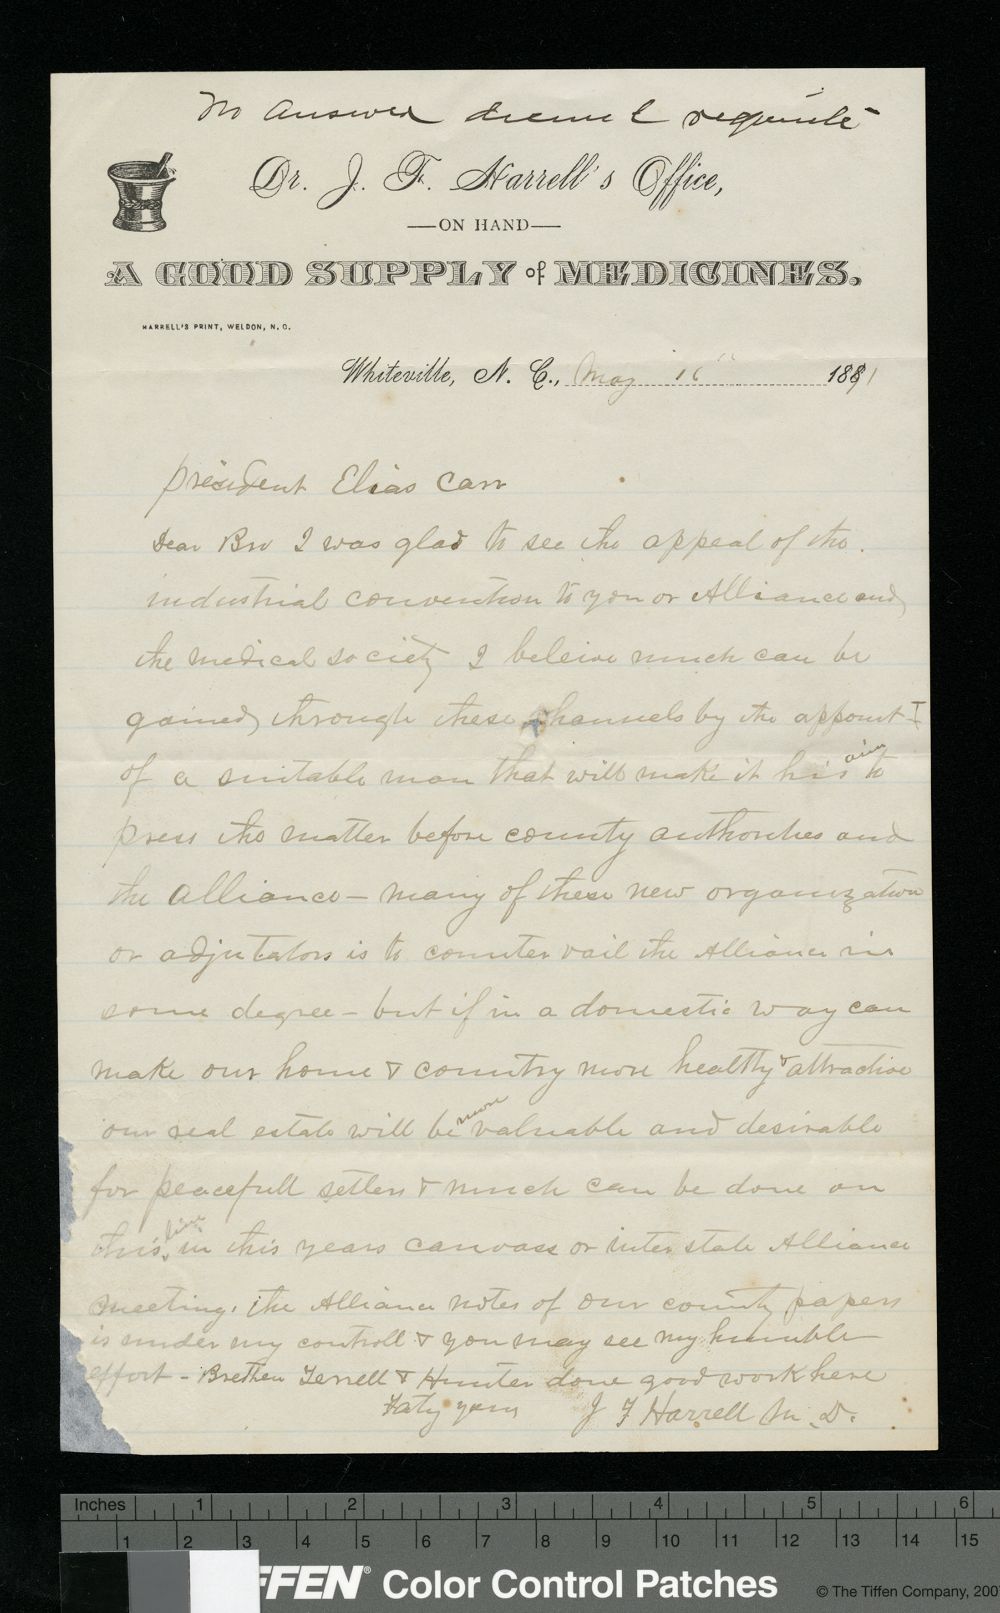 No answer deemed requisite
Dr. J. F. Harrell's Office,
—ON HAND—
A GOOD SUPPLY of MEDICINES.
HARRELL'S PRINT, WELDON, N. C.
Whiteville, N. C., May 16" 1891
President Elias Carr
Dear Bro I was glad to see the appeal of the
industrial convention to you or Alliance and
the medical society I beleive much can be
gained through these channels by the appoint
of a suitable man that will make it his aim to
press the matter before county authorities and
the alliance – many of these new organization
or adjutators is to countervail the Alliance in
some degree – but if in a domestic way can
make our home & country more healthy & attractive
our real estate will be more valuable and desirable
for peacefull setlers & much can be done on
this line in this years canvass or inter state Alliance
meeting. The Alliance notes of our county papers
is under my controll & you may see my humble
effort – Brethen Terrell & Hunter done good work here
Faty yours J F Harrell M. D.
Inches 1 2 3 4 5 6
1 2 3 4 5 6 7 8 9 10 11 12 13 14 15
FFEN® Color Control Patches © The Tiffen Company, 200